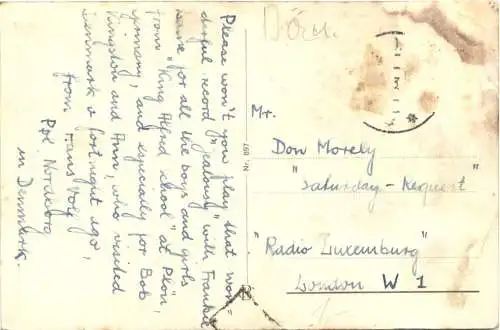 Please won't you play that won-
derful record "Jealousy" with Frankie
Laine for all the boys and girls
from "King Alfred School" at Plön,
Germany, and especially for Bob
Kingston and Ann, who visited
Denmark a fortnight ago,
from Hans Volf
Pgl. Nordborg
in Denmark.
Mr.
Don Morely
"Saturday-Request"
"Radio Luxemburg"
London W 1